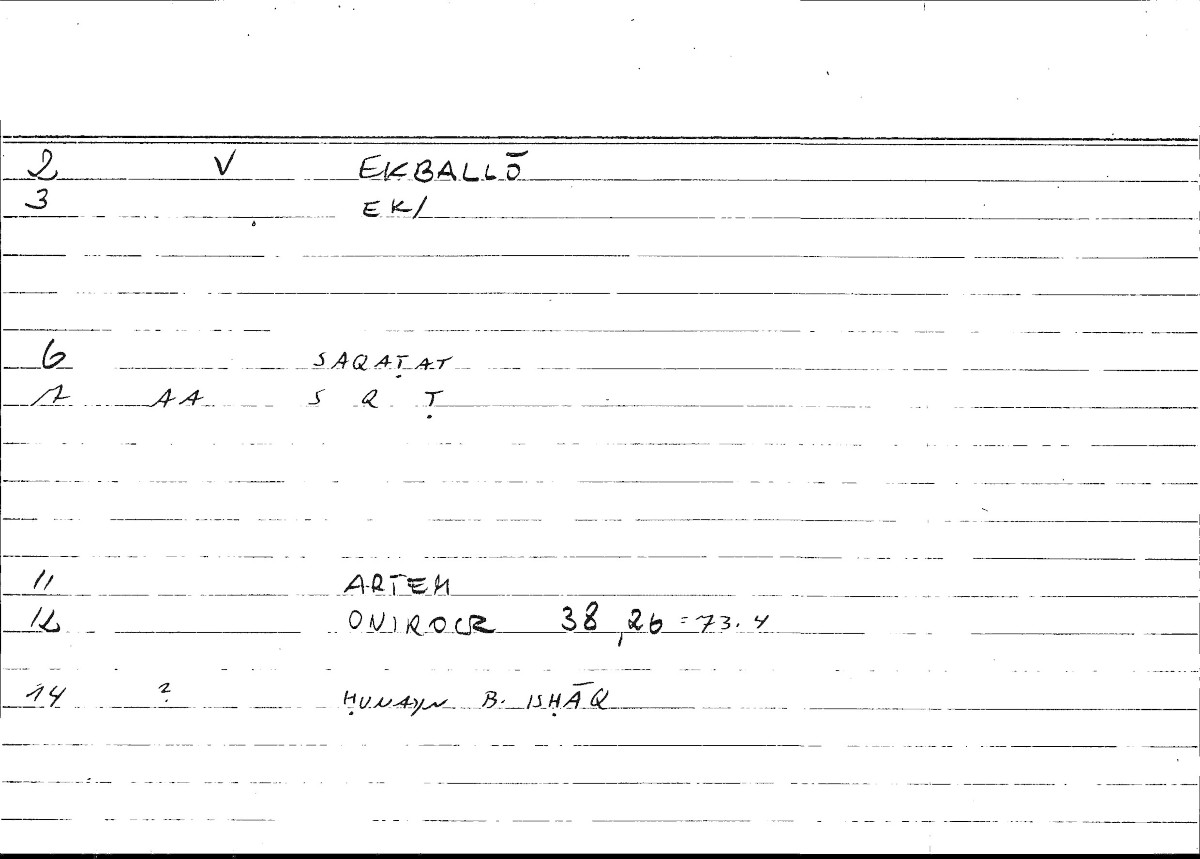 2 V EKBALLŌ
3 EK/
6 SAQAṬAT
7 AA S Q Ṭ
11 ARTEM
12 ONIROCR 38,26 = 73.4
14 ? ḤUNAYN B. ISḤĀQ